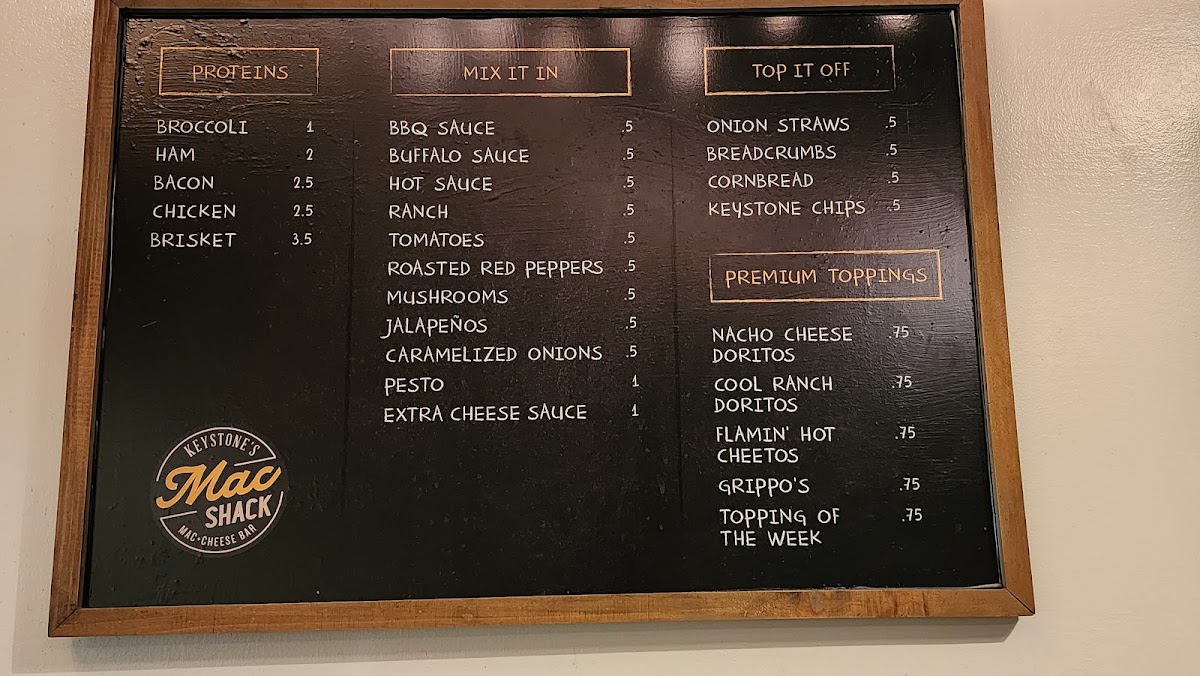 PROTEINS
BROCCOLI 1
HAM 2
BACON 2.5
CHICKEN 2.5
BRISKET 3.5
KEYSTONE'S
Mac
SHACK
MAC•CHEESE BAR
MIX IT IN
BBQ SAUCE .5
BUFFALO SAUCE .5
HOT SAUCE .5
RANCH .5
TOMATOES .5
ROASTED RED PEPPERS .5
MUSHROOMS .5
JALAPEÑOS .5
CARAMELIZED ONIONS .5
PESTO 1
EXTRA CHEESE SAUCE 1
TOP IT OFF
ONION STRAWS .5
BREADCRUMBS .5
CORNBREAD .5
KEYSTONE CHIPS .5
PREMIUM TOPPINGS
NACHO CHEESE .75
DORITOS
COOL RANCH .75
DORITOS
FLAMIN' HOT .75
CHEETOS
GRIPPO'S .75
TOPPING OF .75
THE WEEK